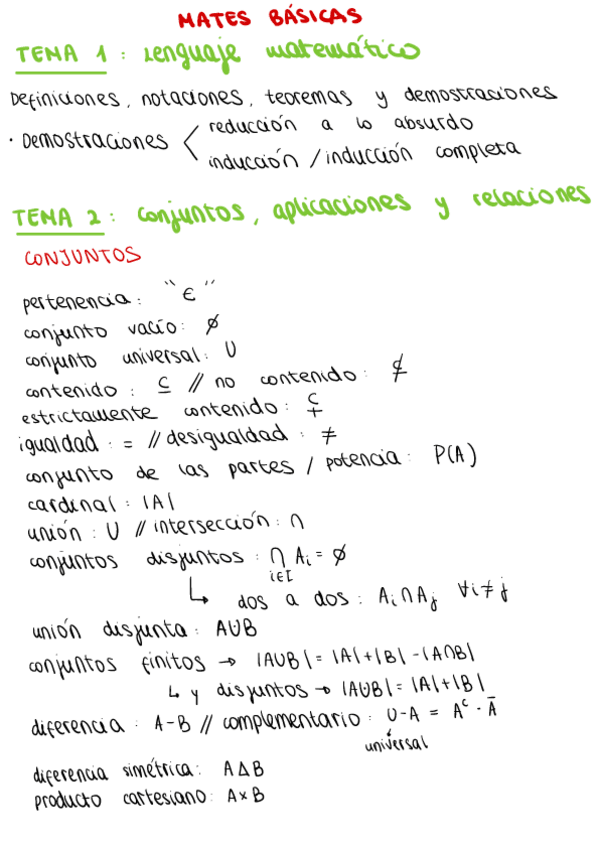 MATES BÁSICAS
TEMA 1 : Lenguaje matemático
Definiciones, notaciones, teoremas y demostraciones
· Demostraciones < reducción a lo absurdo
inducción / inducción completa
TEMA 2 : Conjuntos, aplicaciones y relaciones
CONJUNTOS
pertenencia : "∈"
conjunto vacío : ∅
conjunto universal : U
contenido : ⊆ // no contenido : ⊈
estrictamente contenido : ⊊
igualdad : = // desigualdad : ≠
conjunto de las partes / potencia : P(A)
cardinal : |A|
unión : ∪ // intersección : ∩
conjuntos disjuntos : ⋂ Aᵢ = ∅
i∈I
↳ dos a dos : Aᵢ ∩ Aⱼ ∀i ≠ j
unión disjunta : A∪B
conjuntos finitos → |A∪B| = |A|+|B| - |A∩B|
↳ y disjuntos → |A∪B| = |A|+|B|
diferencia : A-B // complementario : U-A = Aᶜ · Ā
universal
diferencia simétrica : A Δ B
producto cartesiano : A×B